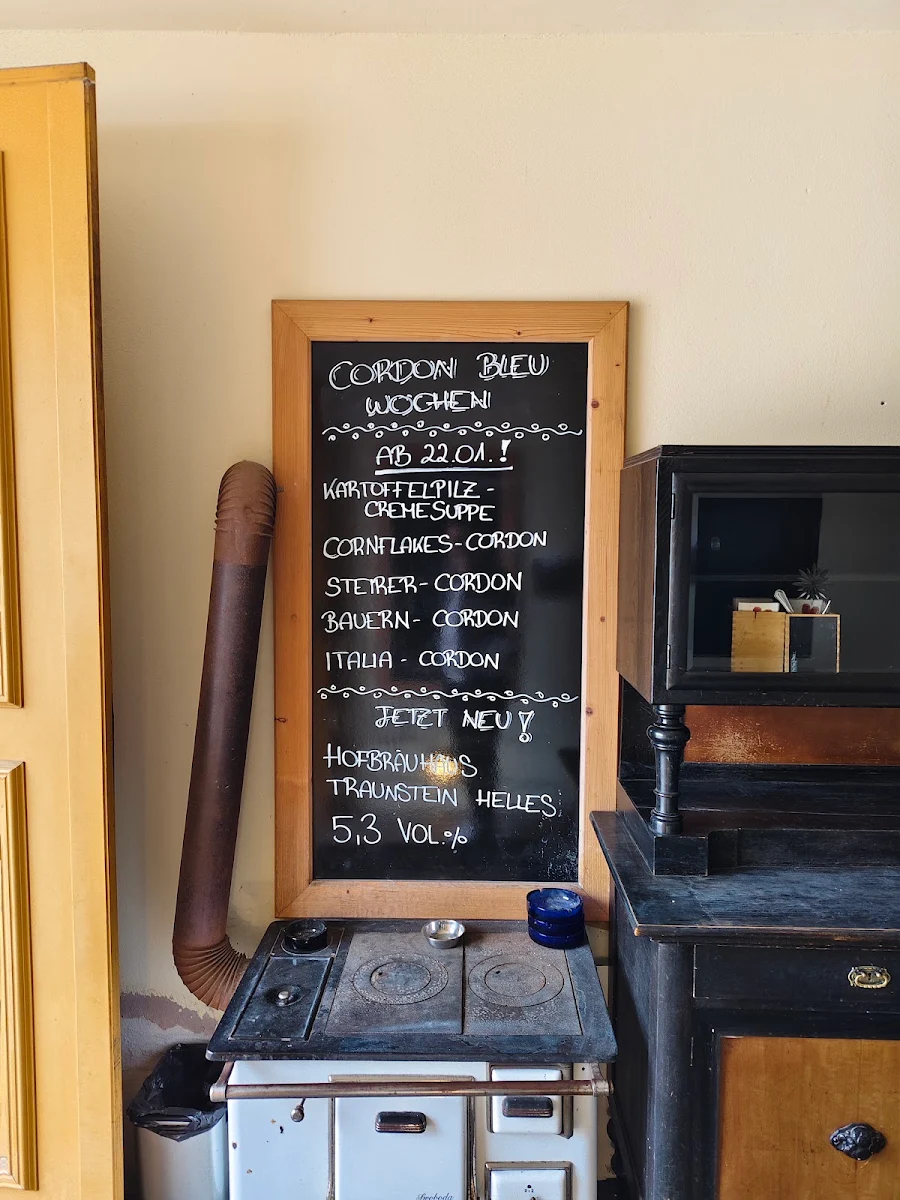 CORDON BLEU
WOCHEN
AB 22.01.!
KARTOFFELPILZ-
CREMESUPPE
CORNFLAKES-CORDON
STEIRER-CORDON
BAUERN-CORDON
ITALIA-CORDON
JETZT NEU!
HOFBRÄUHAUS
TRAUNSTEIN HELLES
5,3 VOL.%
Svoboda